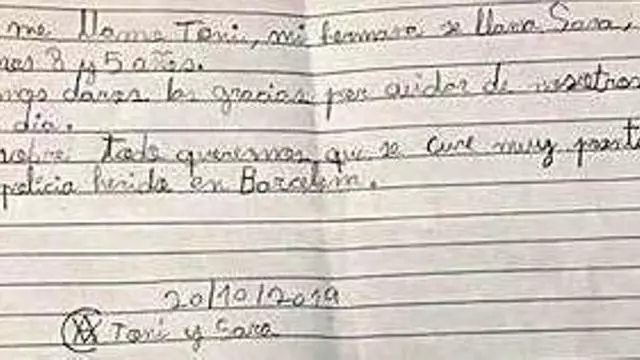 me llamo Toni, mi hermana se llama Sara,
mos 8 y 5 años.
mos daros las gracias por cuidar de nosotros
dia.
sobre todo queremos que se cure muy pronto
policia herido en Barcelona.
20/10/2019
Toni y Sara